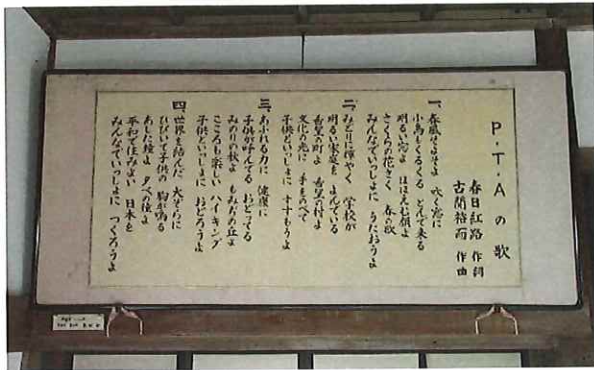 P・T・Aの歌
春日紅路 作詞
古関裕而 作曲
一、春風そよそよ 吹く窓に
小鳥もくるくる とんで来る
明るい空よ ほほえむ顔よ
さくらの花さく 春の歌
みんなでいっしょに うたおうよ
二、みどりに輝やく 学校が
明るい家庭を よんでいる
希望の町よ 希望の村よ
文化の光に 手をのべて
子供といっしょに すすもうよ
三、あふれる力に 健康に
子供が呼んでる おどってる
みのりの秋よ もみぢの丘よ
こころも楽しい ハイキング
子供といっしょに おどろうよ
四、世界を結んだ 大ぞらに
ひびいて子供の 胸が鳴る
あしたの鐘よ 夕べの鐘よ
平和で住みよい 日本を
みんなでいっしょに つくろうよ